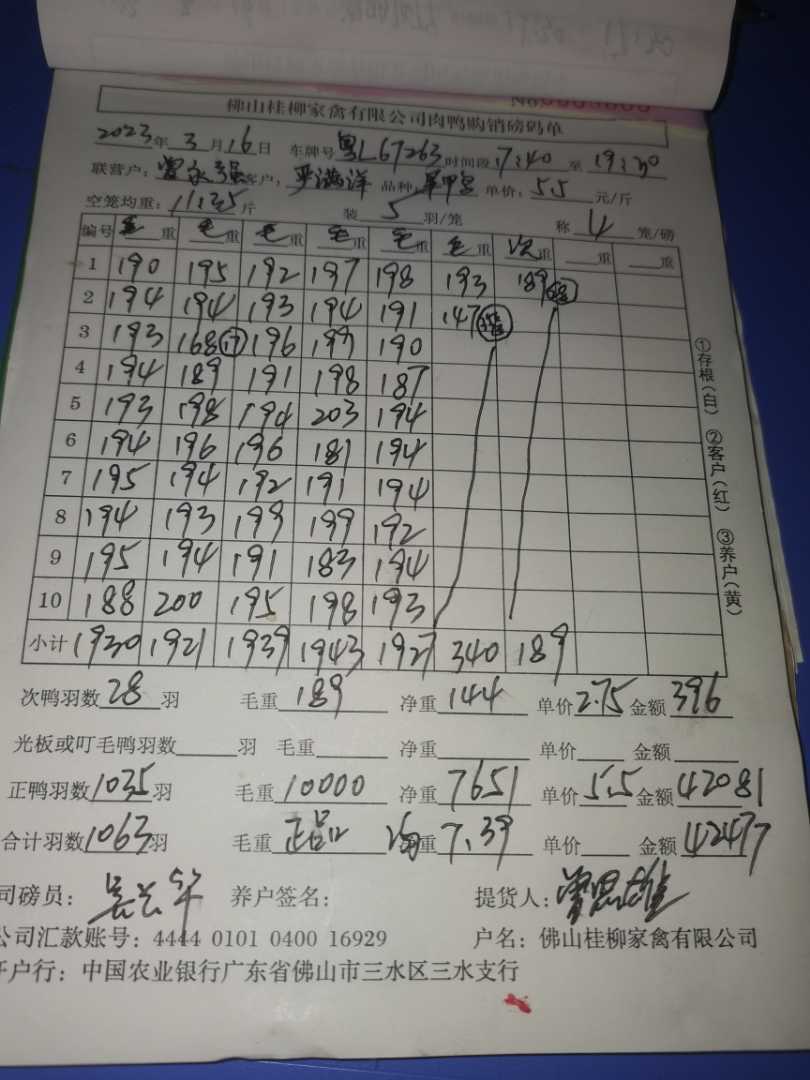 佛山桂柳家禽有限公司肉鸭购销磅码单
2023年 3 月 16 日 车牌号 粤L67263 时间段 17:40 至 19:30
联营户: 曾永强 客户: 严满洋 品种: 单价: 5.5 元/斤
空笼均重: 11.25 斤 装 5 羽/笼 称 4 笼/磅
编号 毛重 毛重 毛重 毛重 毛重 毛重 次重 重 重
1 190 195 192 197 198 193 189
2 194 194 193 194 191 147
3 193 168 196 199 190
4 194 189 191 198 187
5 193 198 194 203 194
6 194 196 196 181 194
7 195 194 192 191 194
8 194 193 199 199 192
9 195 194 191 183 194
10 188 200 195 198 193
小计 1930 1921 1939 1943 1927 340 189
次鸭羽数 28 羽 毛重 189 净重 144 单价 2.75 金额 396
光板或叮毛鸭羽数 羽 毛重 净重 单价 金额
正鸭羽数 1035 羽 毛重 10000 净重 7651 单价 5.5 金额 42081
合计羽数 1063 羽 毛重 正品 均重 7.39 单价 金额 42477
司磅员: 养户签名: 提货人:
公司汇款账号: 4444 0101 0400 16929 户名: 佛山桂柳家禽有限公司
开户行: 中国农业银行广东省佛山市三水区三水支行
①存根(白) ②客户(红) ③养户(黄)